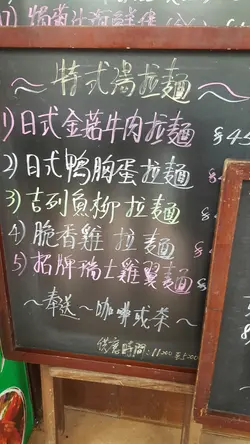 ~特式湯拉麵~
1)日式金菇牛肉拉麵 $4
2)日式鴨胸蛋拉麵
3)吉列魚柳拉麵 $
4)脆香雞拉麵 $
5)招牌瑞士雞翼麵 $
~奉送~咖啡或茶~
供應時間:11:00至5:00